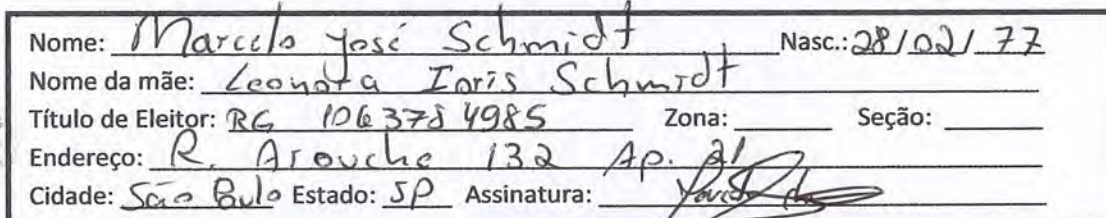 Nome: Marcelo José Schmidt Nasc.: 28/02/77
Nome da mãe: Leonora Ioris Schmidt
Título de Eleitor: RG 106378 4985 Zona: Seção:
Endereço: R. Arouche 132 Ap. 21
Cidade: São Paulo Estado: SP Assinatura: